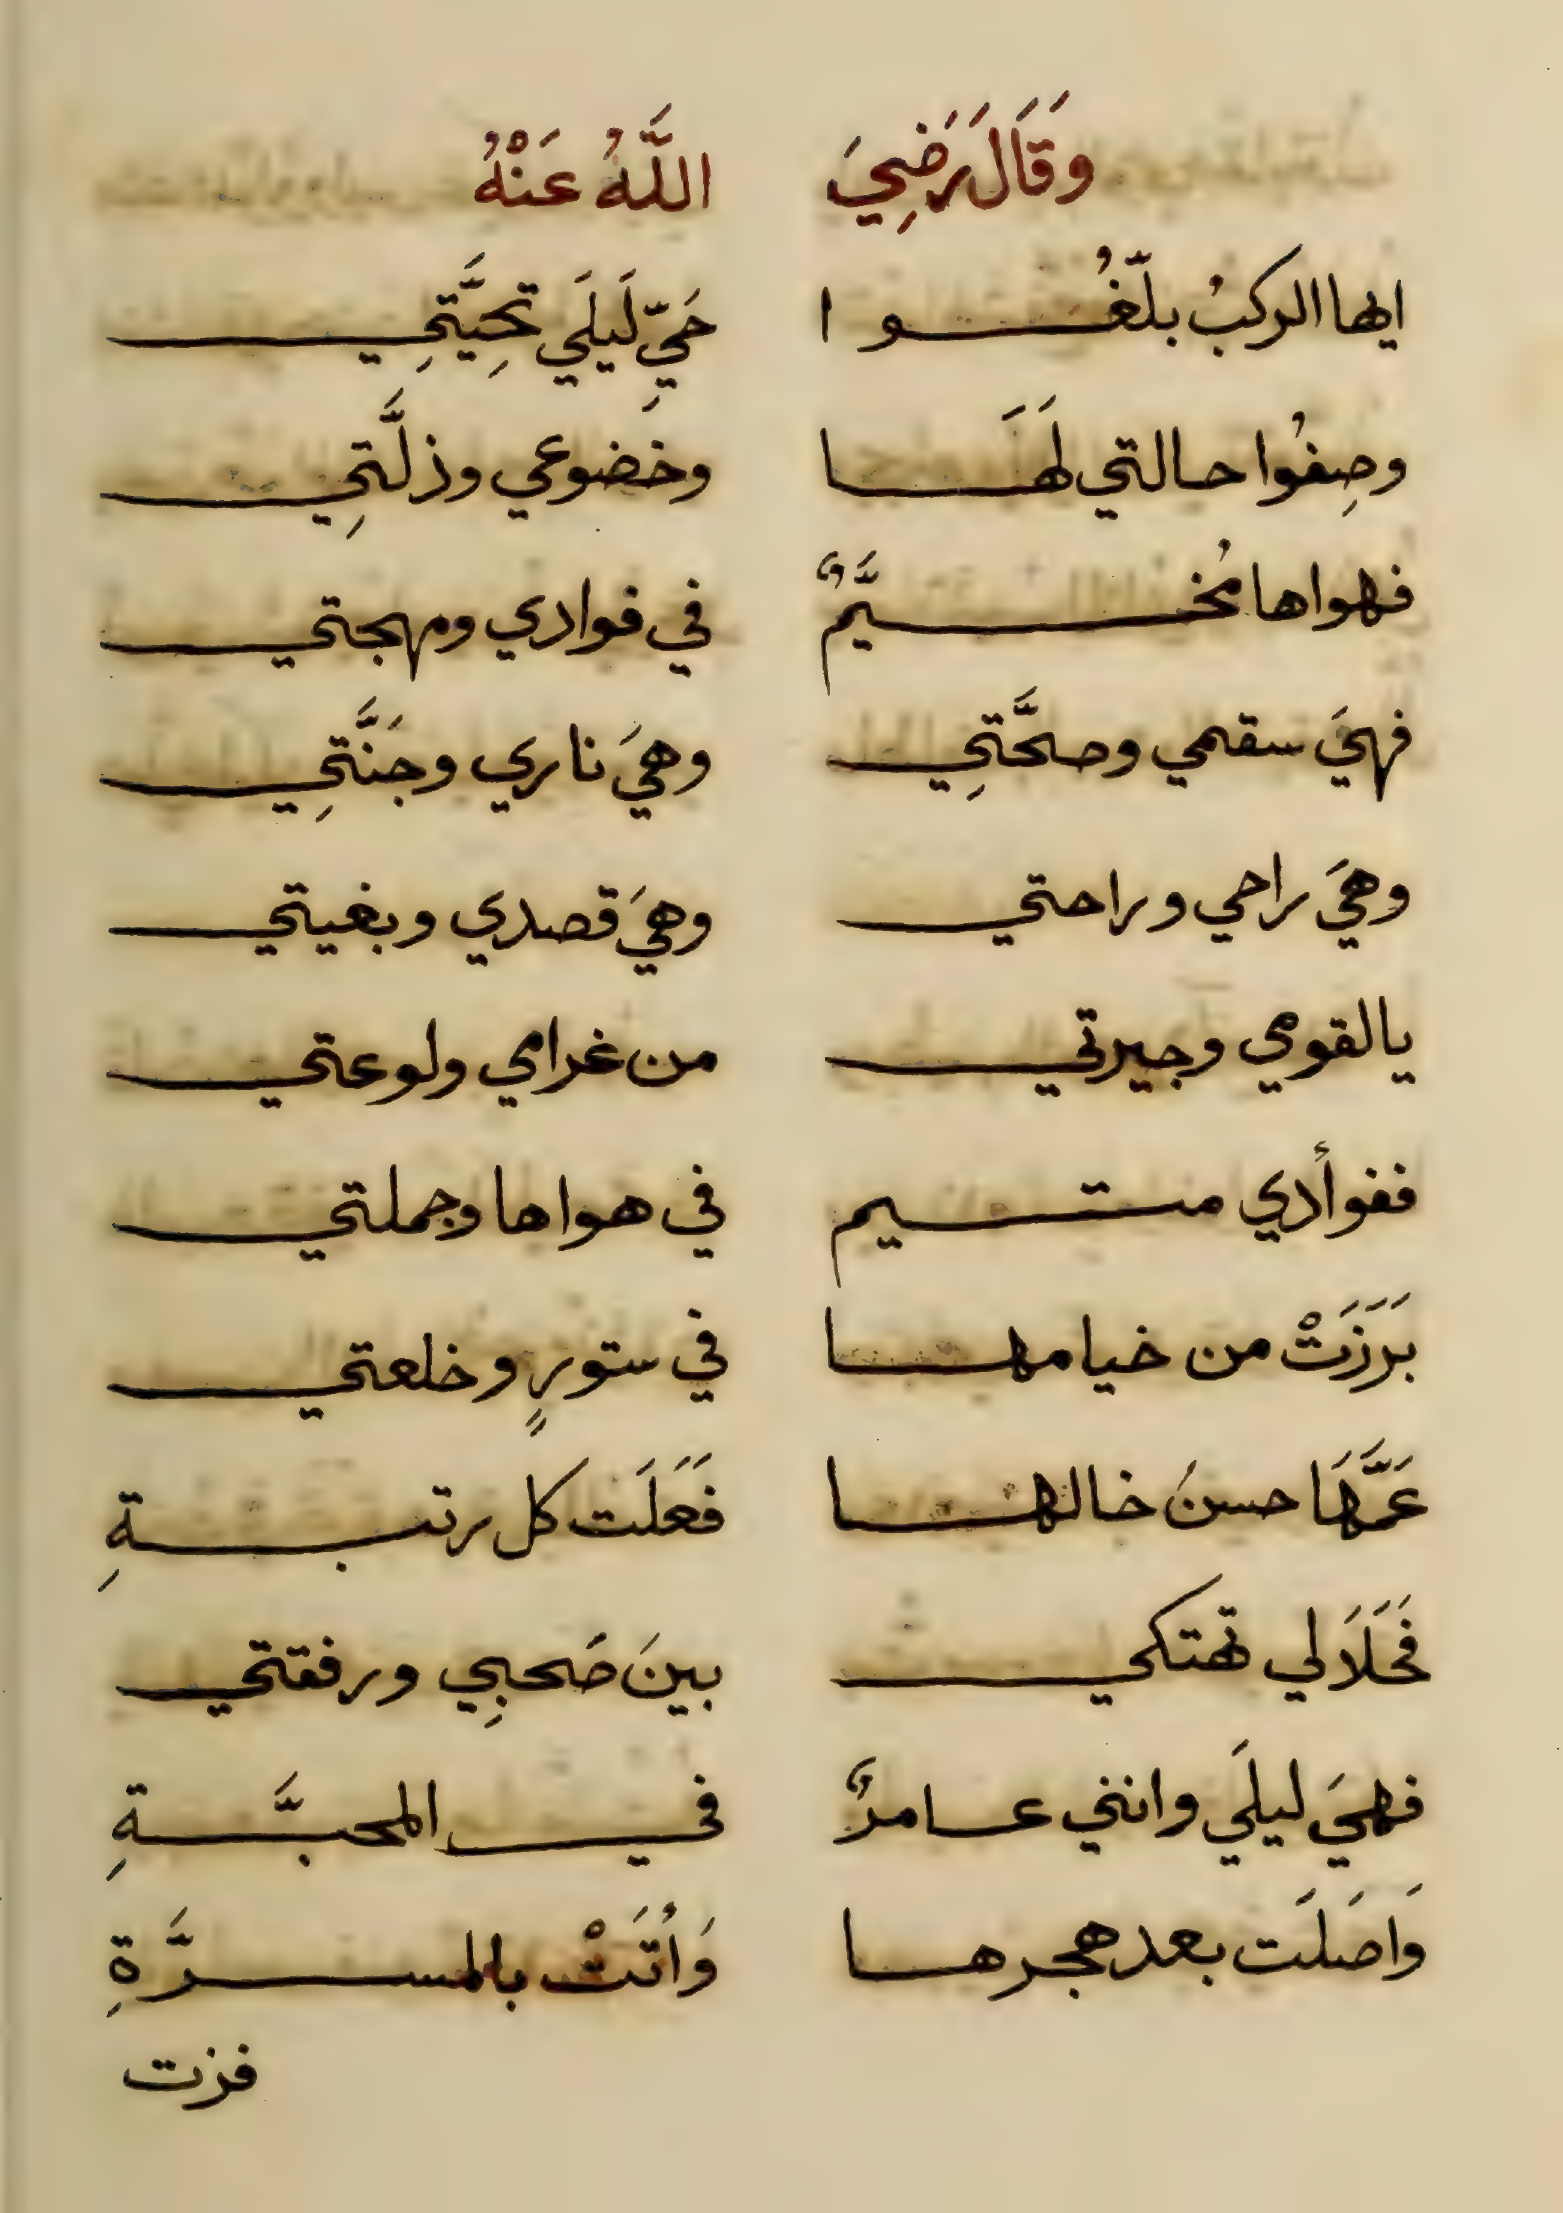 وَقَالَ رَضِيَ اللَّهُ عَنْهُ
ايها الركبُ بلّغُوا حَيِّ لَيلَي تَحِيَّتِي
وصِفُوا حالتي لَهَا وخضوعي وذلَّتِي
فهواها مُخيَّمٌ في فوادي ومهجتي
فهيَ سقمي وصحَّتِي وهيَ ناري وجَنَّتِي
وهيَ راحي وراحتي وهيَ قصدي وبغيتي
يا لقومي وجيرتي من غرامي ولوعتي
ففوأدي متيم في هواها وجملتي
بَرَزَتْ من خيامها في ستورٍ وخلعتي
عَمَّهَا حسنُ خالها فَعَلَت كل رتبةِ
فَحَلَا لي تهتكي بينَ صَحبِي ورفقتي
فهيَ ليلَي وانني عامرٌ في المحبَّةِ
وَاصَلَت بعد هجرها وَأتَتْ بالمسرَّةِ
فزت